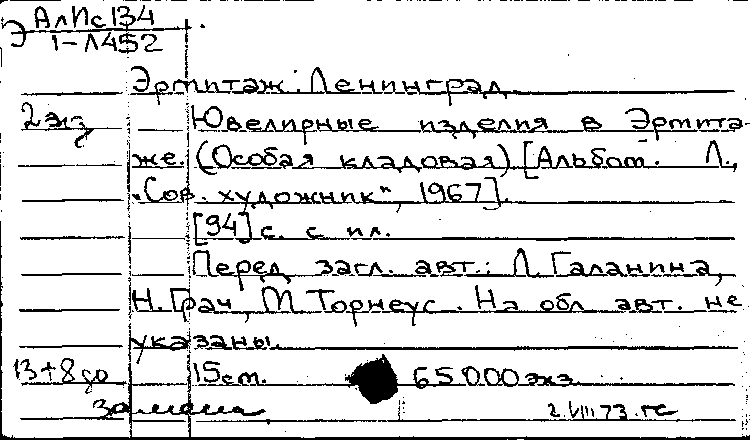 Э АлПс134
1-Л452
Эрмитаж. Ленинград.
2 экз Ювелирные изделия в Эрмита-
же. (Особая кладовая) [Альбом. Л.,
"Сов. художник", 1967].
[94] с. с ил.
Перед загл. авт.: Л. Галанина,
Н. Грач, М. Торнеус. На обл. авт. не
указаны.
13+8 15см. 65000 экз.
замена 2.VIII 73.